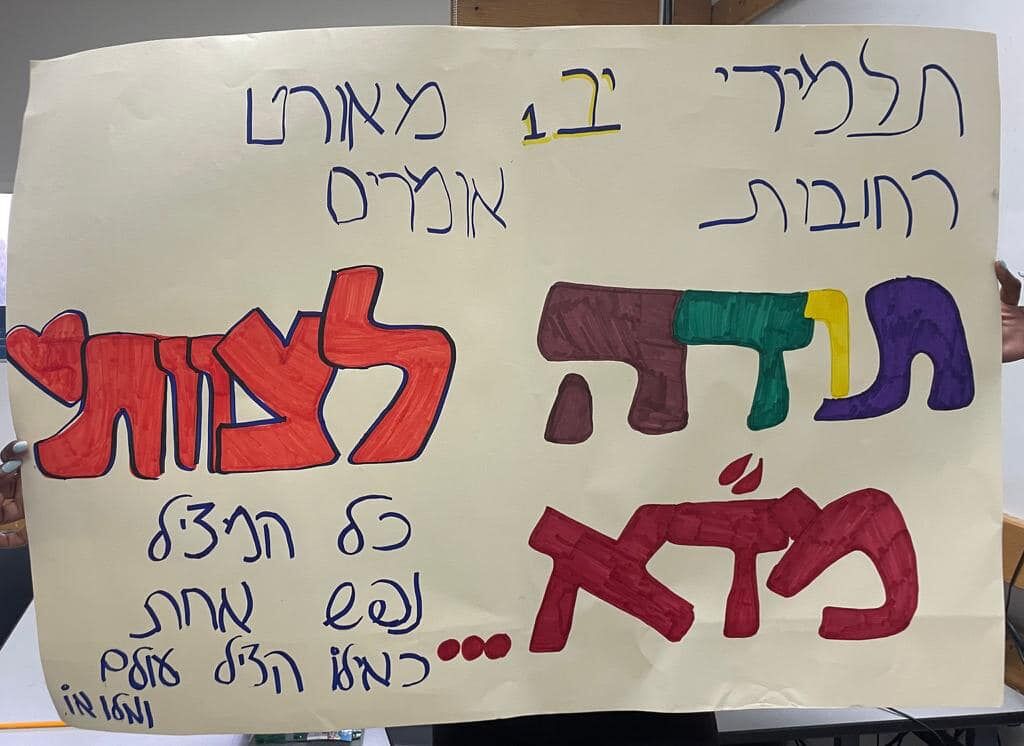 תלמידי יב1 מאורט
רחובות אומרים
תודה לצוותי
מד"א...
כל המציל
נפש אחת
כאילו הציל עולם
ומלואו.